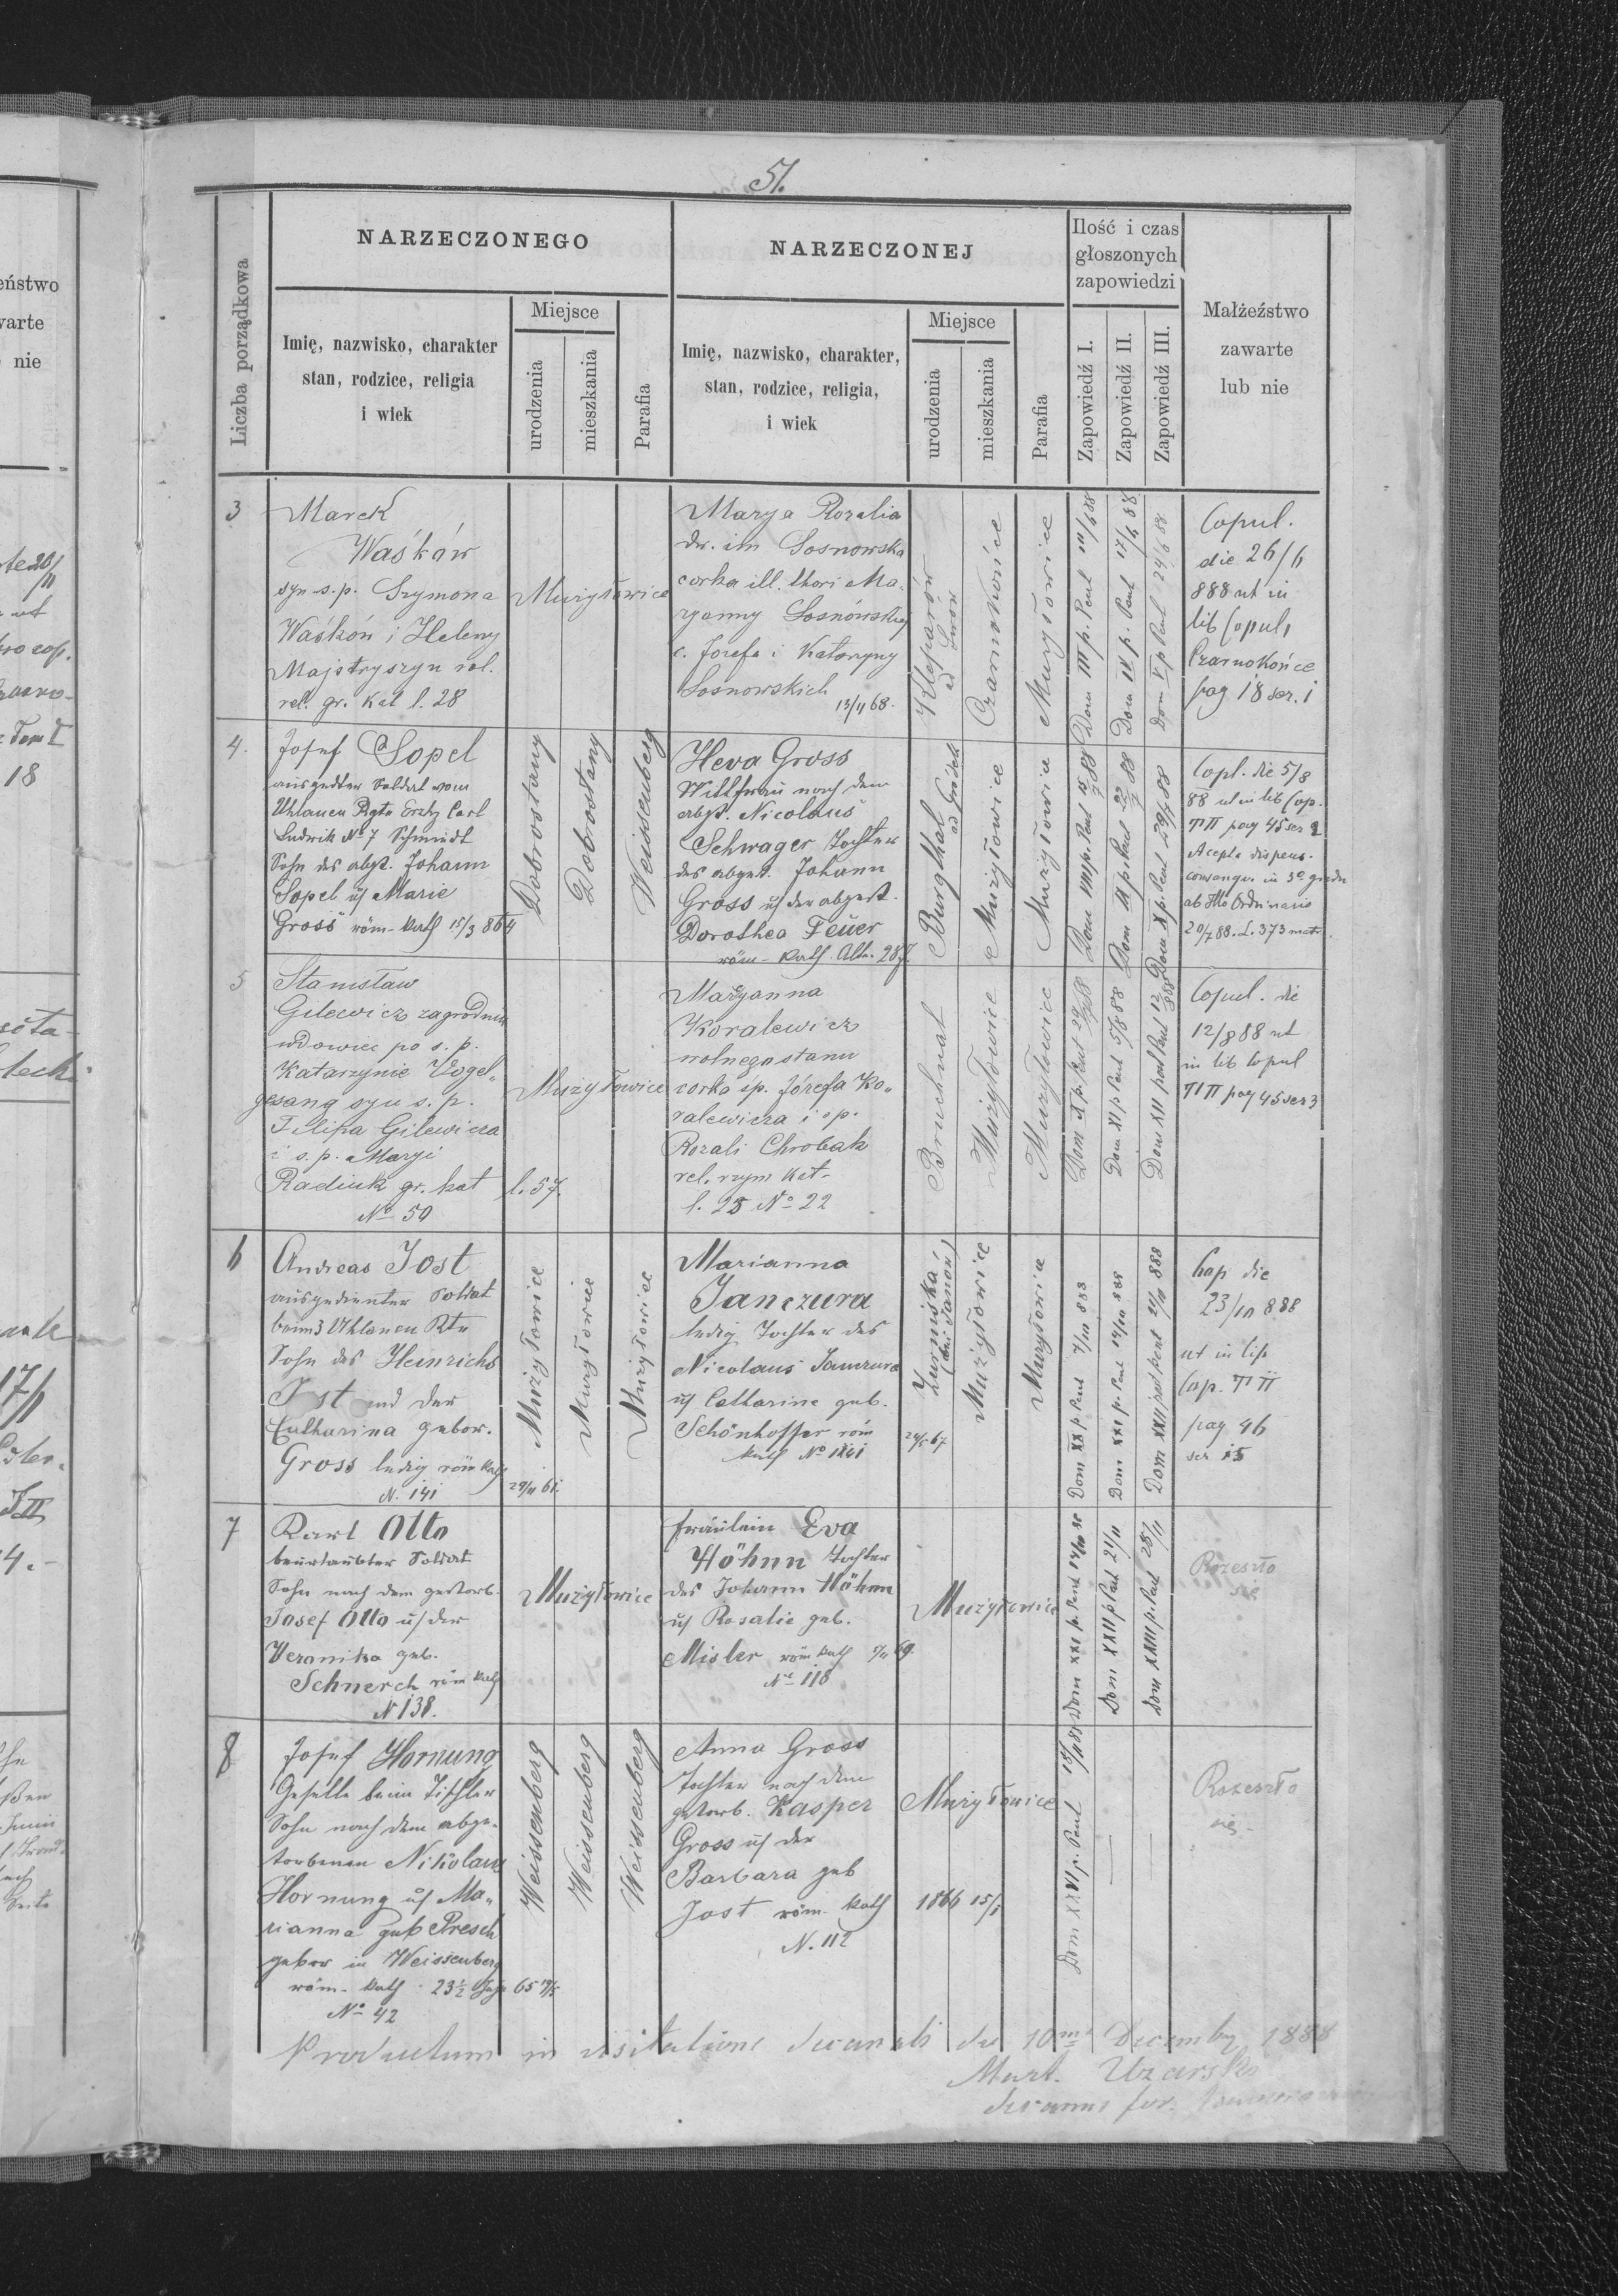 51.
Liczba porządkowa
NARZECZONEGO
Imię, nazwisko, charakter
stan, rodzice, religia
i wiek
Miejsce
urodzenia
mieszkania
Parafia
NARZECZONEJ
Imię, nazwisko, charakter,
stan, rodzice, religia,
i wiek
Miejsce
urodzenia
mieszkania
Parafia
Ilość i czas
głoszonych
zapowiedzi
Zapowiedź I.
Zapowiedź II.
Zapowiedź III.
Małżeźstwo
zawarte
lub nie
3
Marek
Waśków
syn s.p. Szymona
Waśków i Heleny
Majstryszyn rol.
rel. gr. kat l. 28
Muzyłowice
Marya Rozalia
dw. im Sosnowska
corka ill. thori Ma-
ryanny Sosnowskiej
c. Józefa i Katarzyny
Sosnowskich
13/11 68.
Kleparów
ad Lwow
Czarnokońce
Muzyłowice
Dom III p. Pent 10/6 88
Dom IV p. Pent 17/6 88
Dom V p Pent 24/6 88
Copul.
die 26/6
888 ut in
lib Copul,
Czarnokońce
pag 18 ser. 1
4.
Josef Sopel
ausgedter Soldat vom
Uhlanen Rgte Erzh Carl
Ludwik No 7 Schmidt
Sohn des abgt. Johann
Sopel u Marie
Gross röm- kath 15/3 864
Dobrostany
Dobrostany
Weissenberg
Heva Gross
Wittfrau nach dem
abgt. Nicolaus
Schwager Tochter
des abgest. Johann
Gross u der abgest.
Dorothea Feuer
röm- kath. Alt. 28 J.
Burgthal
ad Gródek
Muzyłowice
Muzyłowice
Dom VIII p. Pent 15/7 88
Dom IX p Pent 22/7 88
Dom X p. Pent 29/7 88
Copl. die 5/8
88 ut in lib Cop.
T II pag 45 ser 2
Acepta dispens.
consangu. in 3o gradu
ab Illo Ordinario
20/7 88. L. 373 matr.
5
Stanisław
Gilewicz zagrodnik
wdowiec po s. p.
Katarzynie Vogel-
gesang syn s. p.
Filipa Gilewicza
i s. p. Maryi
Radiuk gr. kat l. 57.
No 59
Muzyłowice
Maryanna
Koralewicz
wolnego stanu
corka sp. Józefa Ko-
ralewicza i sp.
Rozali Chrobak
rel. rzym kat-
l. 25 No 22
Bruchnal
Muzyłowice
Muzyłowice
Dom X p. Pent 29/7 88
Dom XI p Pent 5/8 88
Dom XII post Pent 12/8 88
Copul. die
12/8 88 ut
in lib Copul
T II pag 45 ser 3
6
Andreas Jost
ausgedienter Soldat
beim 3 Uhlanen Rte
Sohn des Heinrichs
Jost und der
Catharina gebor.
Gross ledig röm kath
N. 141
29/11 61.
Muzyłowice
Muzyłowice
Muzyłowice
Marianna
Janczura
ledig Tochter des
Nicolaus Janczura
u Catharine geb.
Schönhoffer röm
kath No 141
24/5 67
Zurniska
(bei Janów)
Muzyłowice
Muzyłowice
Dom XX p. Pent 7/10 888
Dom XXI p. Pent 14/10 888
Dom XXII post pent 21/10 888
Cop die
23/10 888
ut in lib
Cop. T II
pag 46
ser 15
7
Karl Otto
beurlaubter Soldat
Sohn nach dem gestorb.
Josef Otto u der
Veronika geb.
Schnerch röm kath
N 138.
Muzyłowice
Fräulein Eva
Höhnn Tochter
des Johann Höhnn
u Rosalie geb.
Misler röm kath 5/11 69.
No 118
Muzyłowice
Dom XXI p. Pent 14/10 88
Dom XXII p Pent 21/11
Dom XXIII p. Pent 25/11
Rozeszło
się
8
Josef Hornung
Geselle beim Tischler
Sohn nach dem abge-
storbenen Nikolaus
Hornung u Ma-
rianna geb Presch
gebor in Weissenberg
röm- kath 23 1/2 Jahr
No 42
Weissenberg
Weissenberg
Weissenberg
Anna Gross
Tochter nach dem
gestorb. Kasper
Gross u der
Barbara geb
Jost röm kath 1866 15/1
N. 112
Muzyłowice
Dom XXVI p. Pent 18/11 88
Rozeszło
się-
Productum in visitatione decanali die 10ma Decembr 1888
Mart. Uzarski
decanus for.